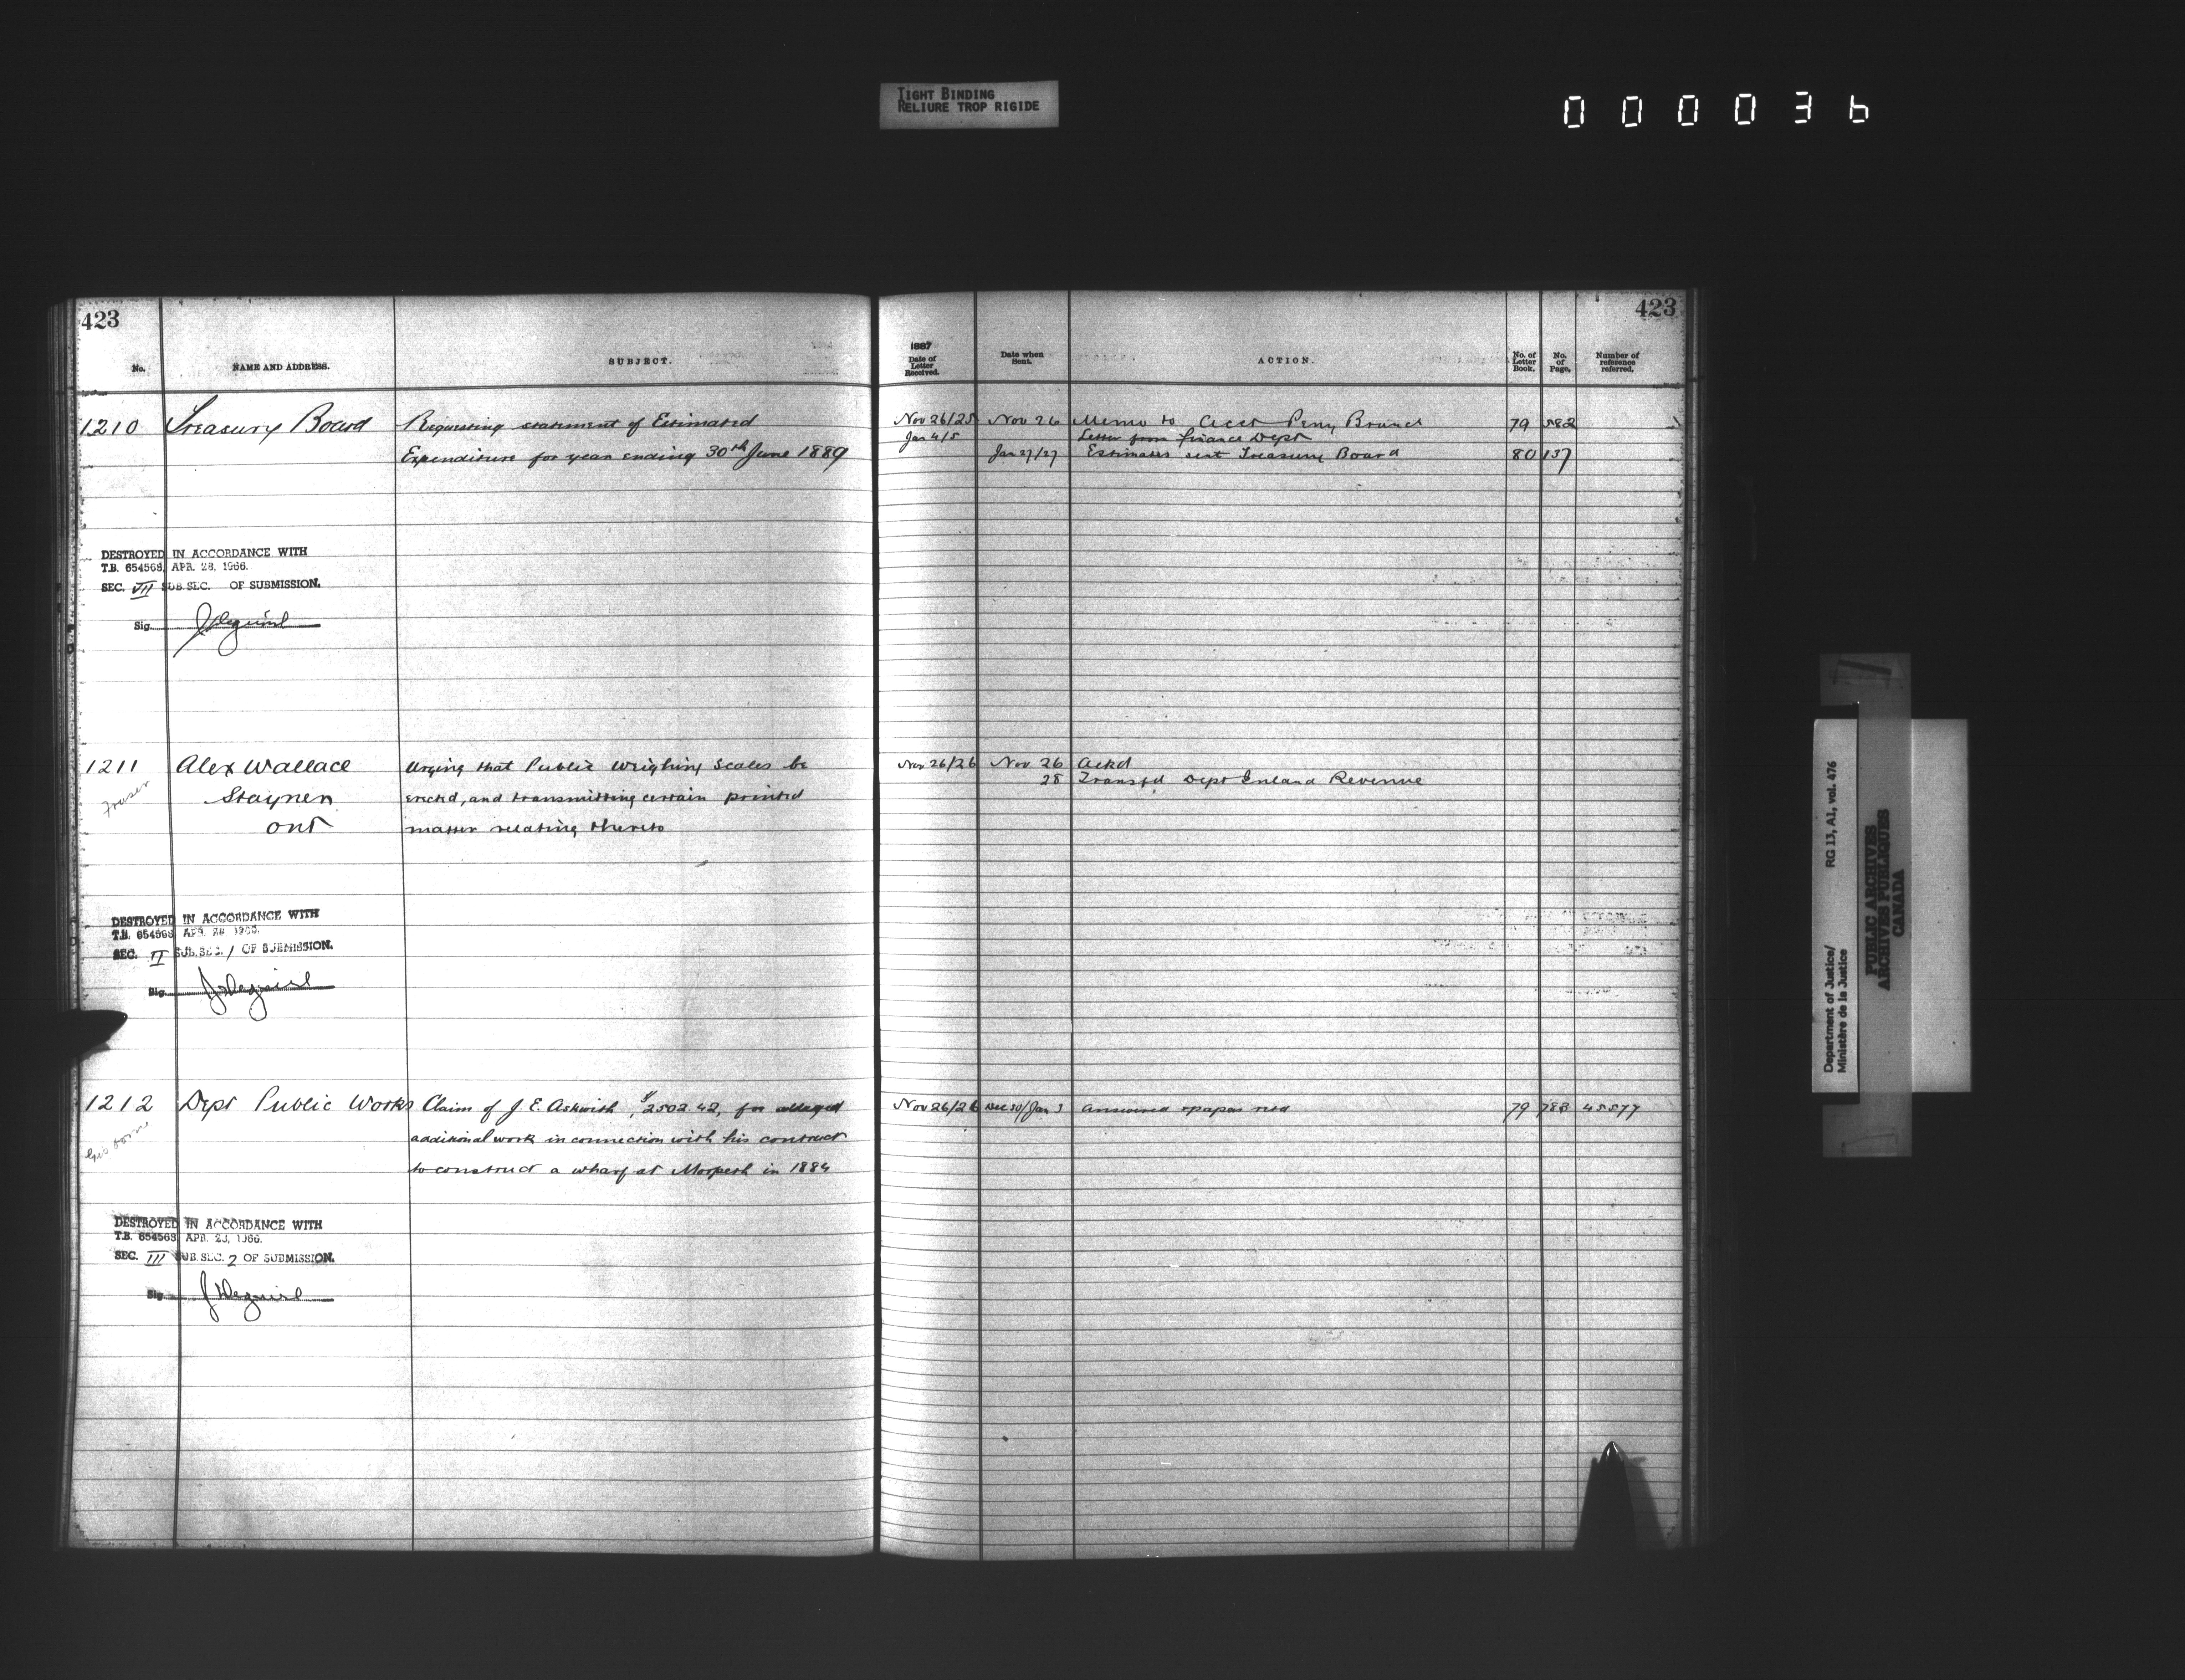 TIGHT BINDING
RELIURE TROP RIGIDE
000036
423
No.
NAME AND ADDRESS.
SUBJECT.
1210 Treasury Board Requesting statement of Estimated
Expenditure for year ending 30th June 1889
DESTROYED IN ACCORDANCE WITH
T.B. 654568, APR. 28, 1966.
SEC. VII SUB.SEC. OF SUBMISSION.
Sig.
1211 Alex Wallace Urging that Public Weighing Scales be
Fraser Stayner erected, and transmitting certain printed
Ont matter relating thereto
DESTROYED IN ACCORDANCE WITH
T.B. 654568, APR. 28 1966.
SEC. II SUB.SEC. 1 OF SUBMISSION.
Sig.
1212 Dept Public Works Claim of J. E. Askwith, $2502.42, for alleged
additional work in connection with his contract
to construct a wharf at Morpeth in 1884
DESTROYED IN ACCORDANCE WITH
T.B. 654568, APR. 28, 1966.
SEC. III SUB.SEC. 2 OF SUBMISSION.
Sig.
423
1887
Date of Letter Received.
Date when Sent.
ACTION.
No. of Letter Book.
No. of Page.
Number of reference referred.
Nov 26/25 Nov 26 Memo to Acct Peny Branch 79 582
Jan 4/5 Letter from Finance Dept
Jan 27/27 Estimates sent Treasury Board 80 137
Nov 26/26 Nov 26 Ackd
28 Transfd Dept Inland Revenue
Nov 26/26 Dec 30/Jan 3 Answered papers retd 79 783 45577
Department of Justice/
Ministère de la Justice
RG 13, A1, vol. 476
PUBLIC ARCHIVES
ARCHIVES PUBLIQUES
CANADA